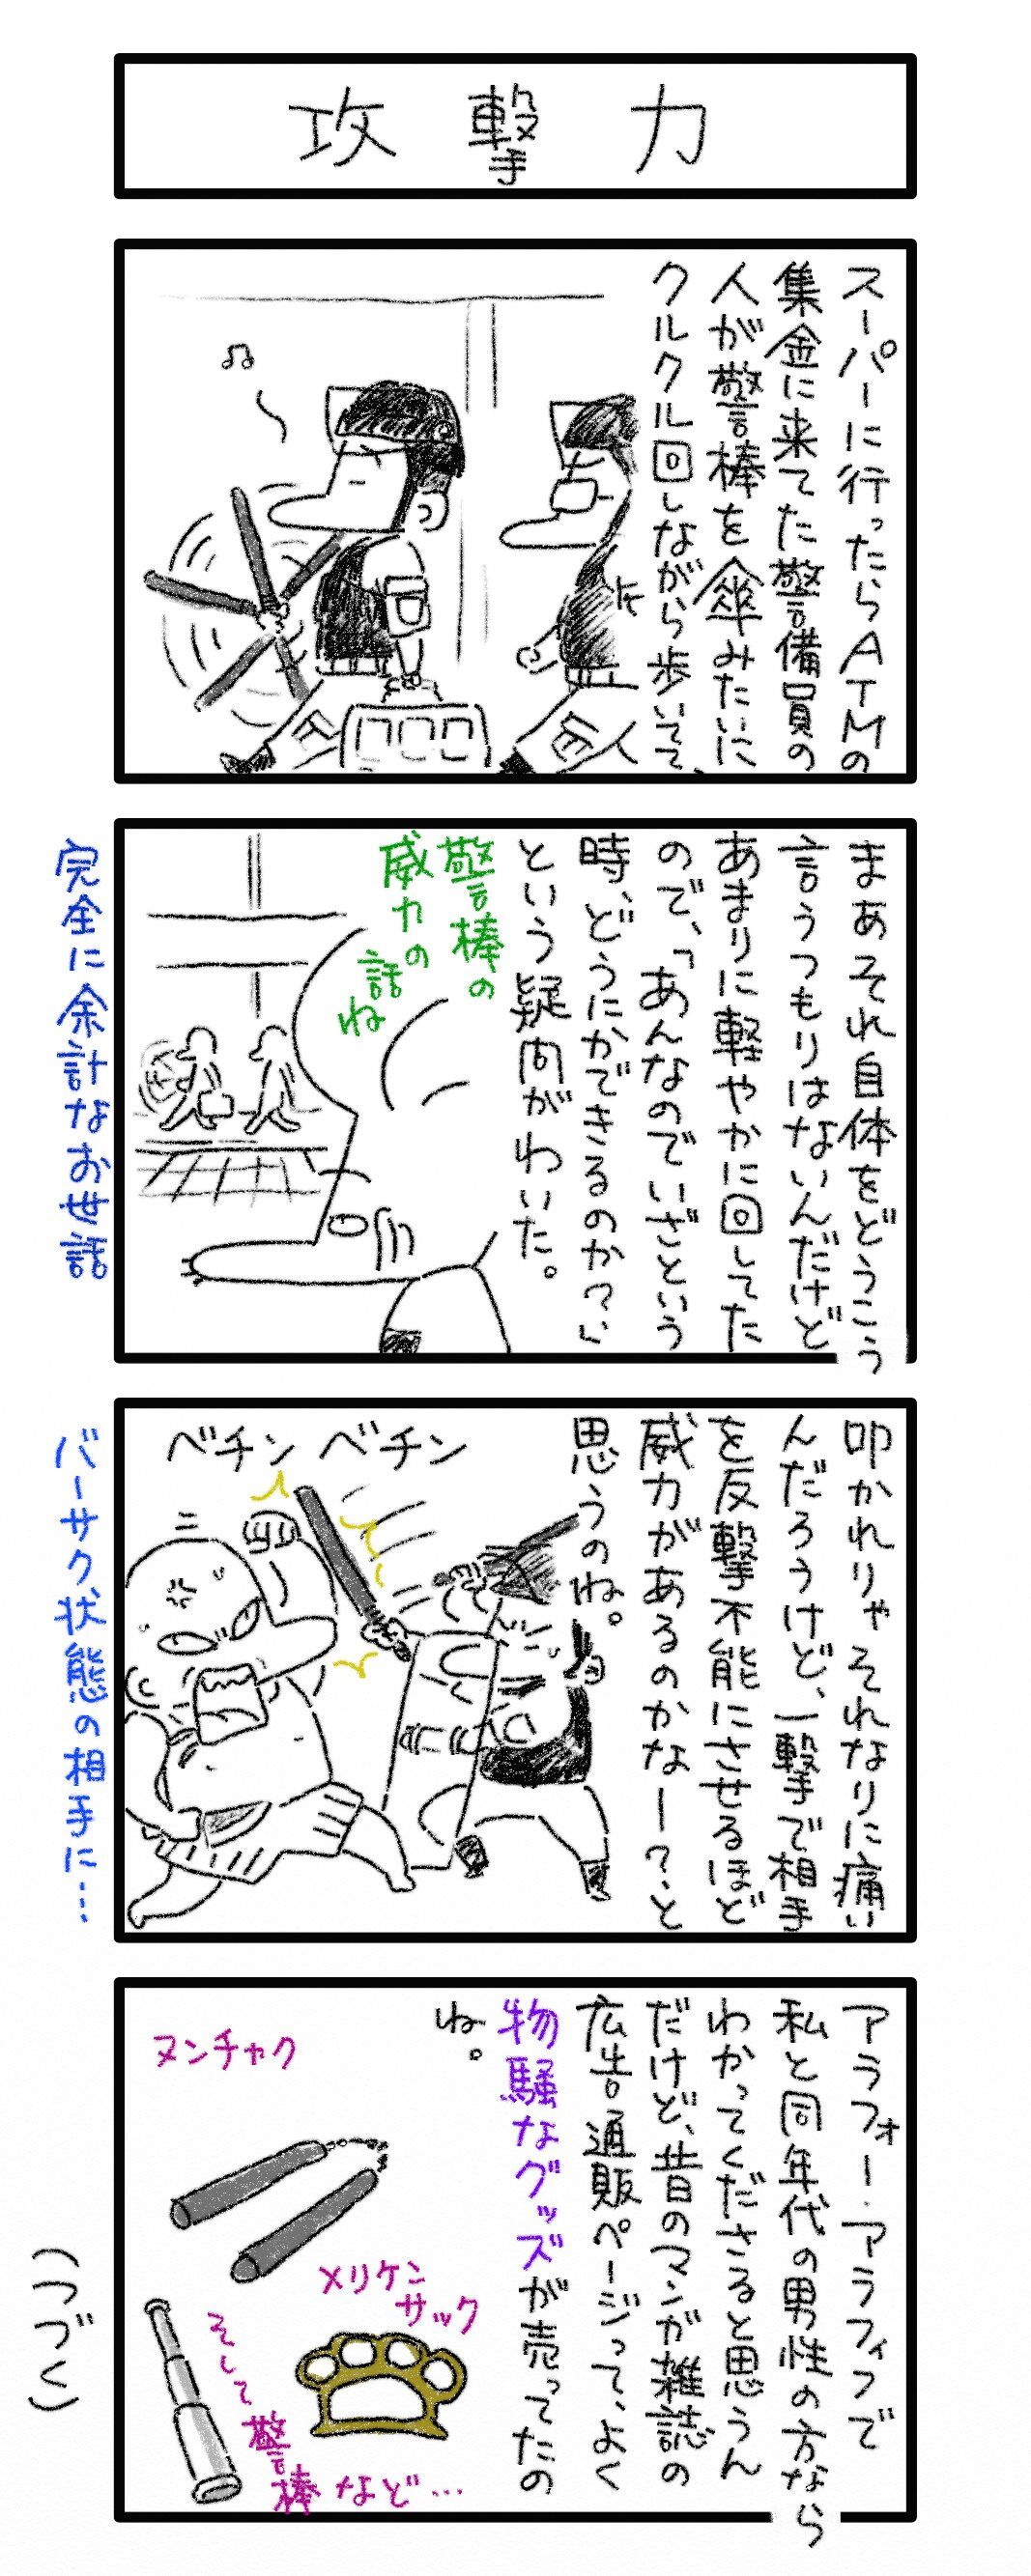 攻撃力
スーパーに行ったらATMの
集金に来てた警備員の
人が警棒を傘みたいに
クルクル回しながら歩いてて、
まあそれ自体をどうこう
言うつもりはないんだけど
あまりに軽やかに回してた
ので、「あんなのでいざという
時、どうにかできるのか?」
という疑問がわいた。
警棒の
威力の
話
ね
完全に余計なお世話
叩かれりゃそれなりに痛い
んだろうけど、一撃で相手
を反撃不能にさせるほど
威力があるのかなー?と
思うのね。
ベチン ベチン
バーサク状態の相手に…
アラフォー・アラフィフで
私と同年代の男性の方なら
わかってくださると思うん
だけど、昔のマンガ雑誌の
広告通販ページって、よく
物騒なグッズが売ってたの
ね。
ヌンチャク
メリケン
サック
そして警棒など…
(つづく)